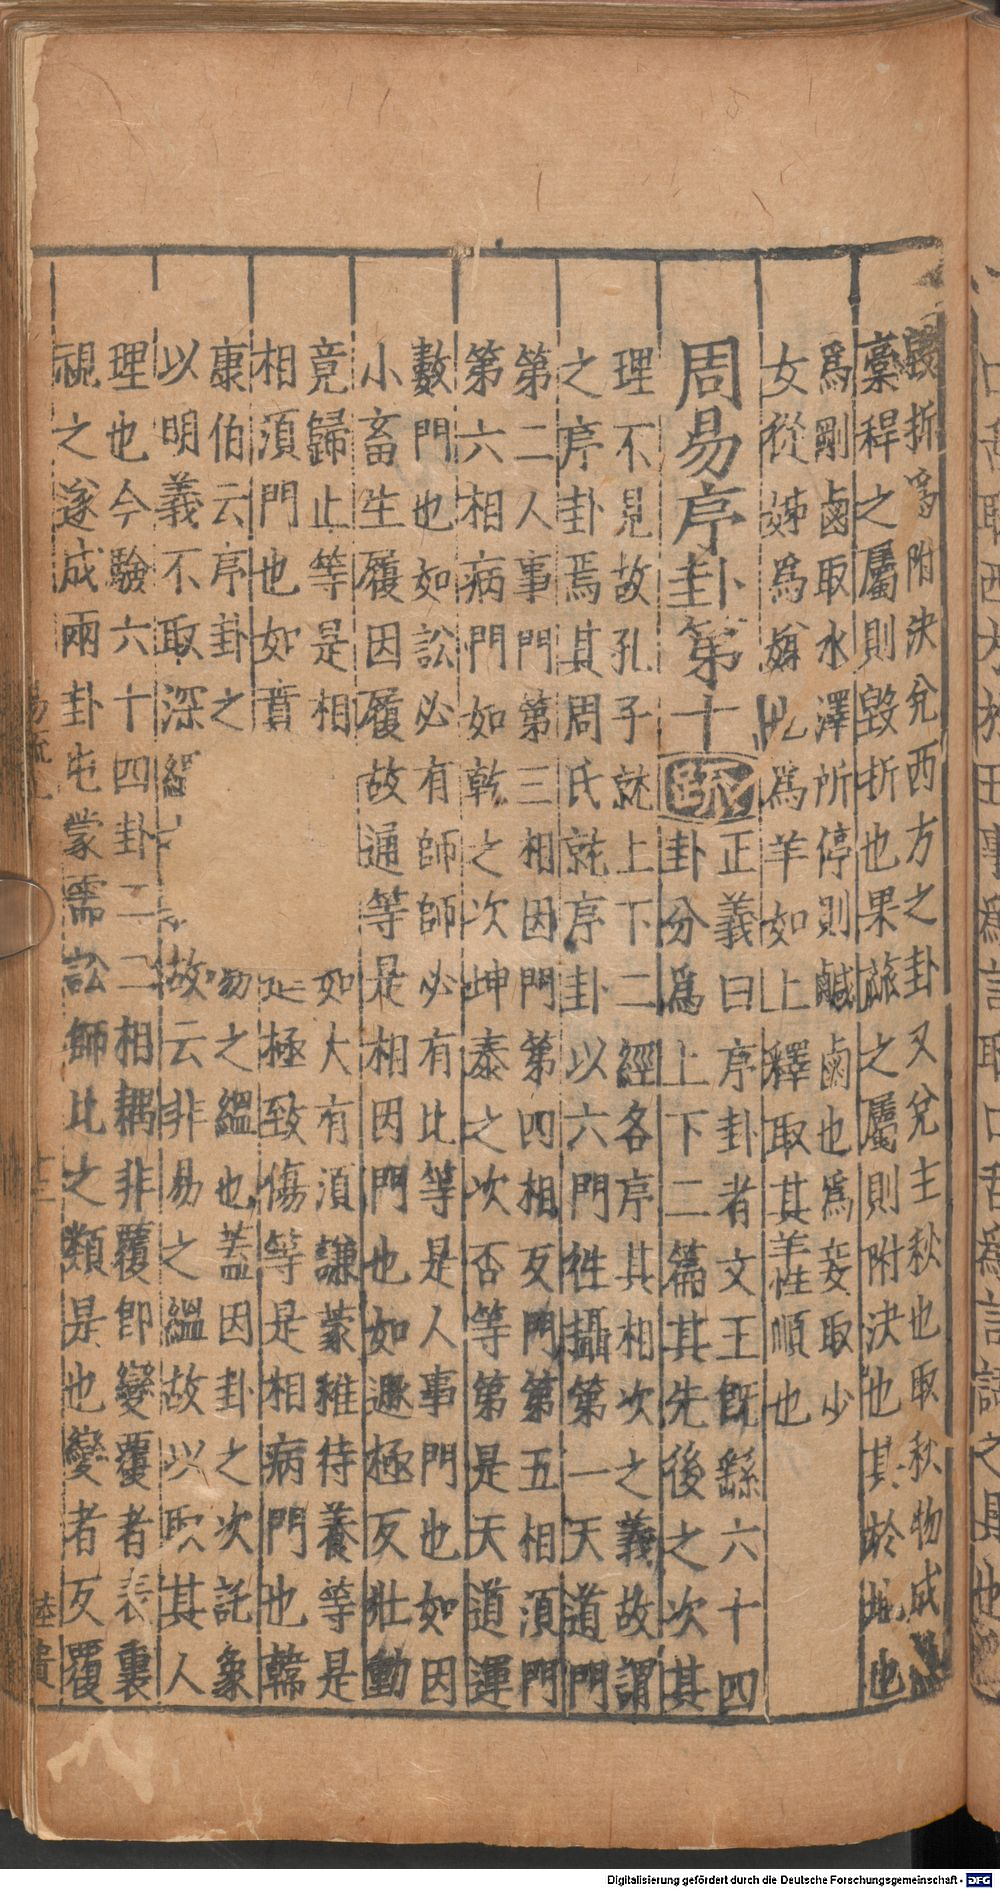 毀折爲附決兌西方之卦又兌主秋也取秋物成
槀稈之屬則毀折也果蓏之屬則附決也其於地也
爲剛鹵取水澤所停則鹹鹵也爲妾取少
女從娣爲娣也爲羊如上釋取其羊性順也
周易序卦第十
疏
正義曰序卦者文王旣繇六十四
卦分爲上下二篇其先後之次其
理不見故孔子就上下二經各序其相次之義故謂
之序卦焉其周氏就序卦以六門徃攝第一天道門
第二人事門第三相因門第四相反門第五相湏門
第六相病門如乾之次坤泰之次否等第是天道運
數門也如訟必有師師必有比等是人事門也如因
小畜生履因履故通等是相因門也如遯極反壯動
竟歸止等是相 如大有湏謙蒙稚待養等是
相湏門也如賁 極致傷等是相病門也韓
康伯云序卦之 易之緼也蓋因卦之次託象
以明義不取深緼 故云非易之緼故以取其人
理也今驗六十四卦二二相耦非覆卽變覆者表裏
視之遂成兩卦屯蒙需訟師比之類是也變者反覆
Digitalisierung gefördert durch die Deutsche Forschungsgemeinschaft - DFG